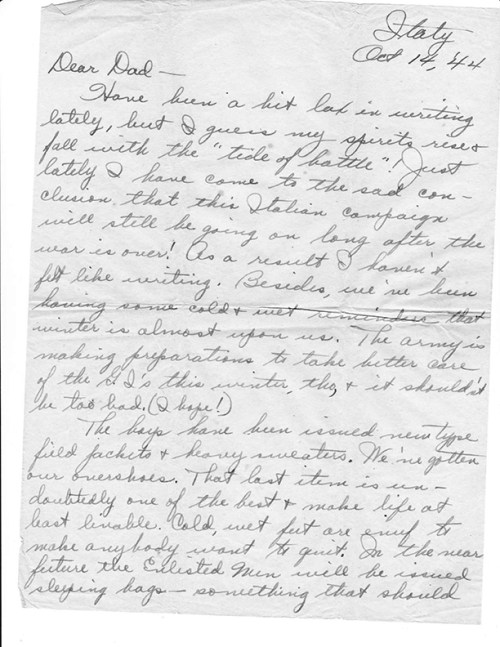 Italy
Oct 14, '44
Dear Dad —
Have been a bit lax in writing
lately, but I guess my spirits rise &
fall with the "tide of battle"! Just
lately I have come to the sad con-
clusion that this Italian campaign
will still be going on long after the
war is over! As a result I haven't
felt like writing. Besides, we've been
having some cold & wet reminders that
winter is almost upon us. The army is
making preparations to take better care
of the G.I's this winter, tho, & it should'nt
be too bad. (I hope!)
The boys have been issued new type
field jackets & heavy sweaters. We've gotten
our overshoes. That last item is un-
doubtedly one of the best & make life at
least livable. Cold, wet feet are enuf to
make anybody want to quit. In the near
future the Enlisted Men will be issued
sleeping bags — something that should